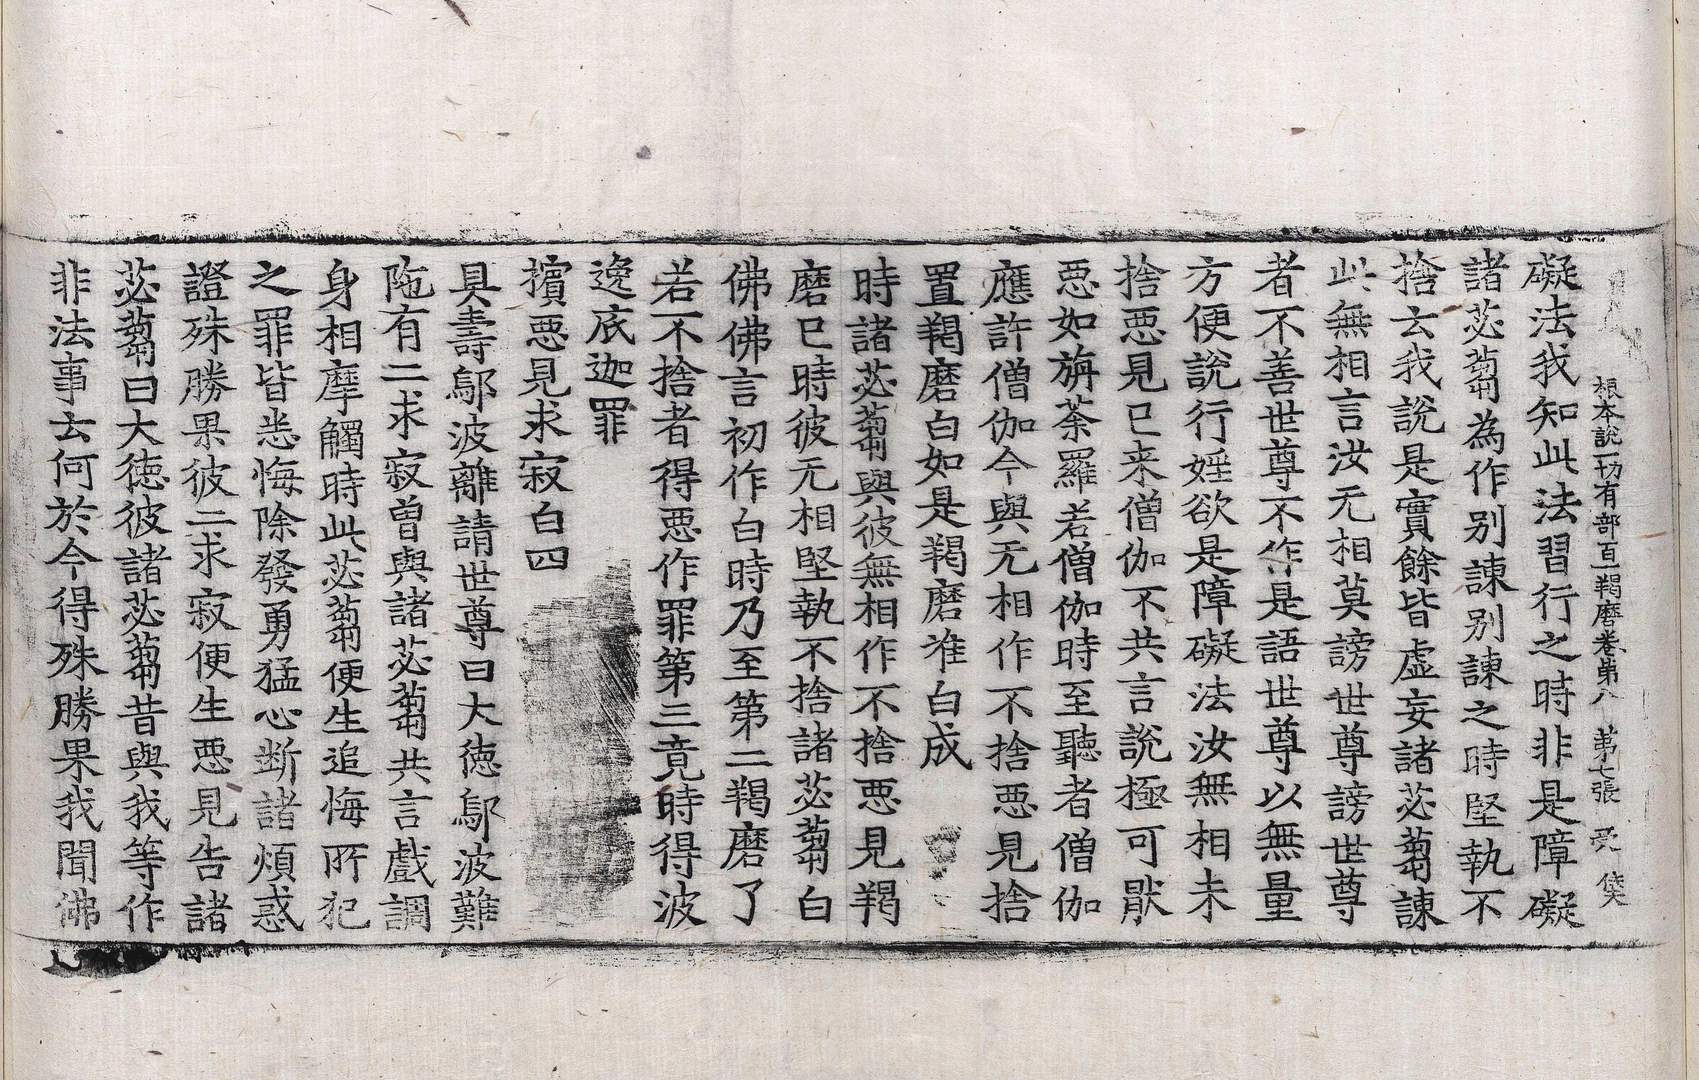 根本說一切有部百一羯磨卷第八 第七張 受
礙法我知此法習行之時非是障礙
諸苾蒭為作別諫別諫之時堅執不
捨云我說是實餘皆虛妄諸苾蒭諫
此無相言汝无相莫謗世尊謗世尊
者不善世尊不作是語世尊以無量
方便說行婬欲是障礙法汝無相未
捨惡見已来僧伽不共言說極可猒
惡如旃荼羅若僧伽時至聽者僧伽
應許僧伽今與无相作不捨惡見捨
置羯磨白如是羯磨准白成
時諸苾蒭與彼無相作不捨惡見羯
磨已時彼无相堅執不捨諸苾蒭白
佛佛言初作白時乃至第二羯磨了
若不捨者得惡作罪第三竟時得波
逸底迦罪
擯惡見求寂白四
具壽鄔波離請世尊曰大德鄔波難
陁有二求寂曾與諸苾蒭共言戲調
身相摩觸時此苾蒭便生追悔所犯
之罪皆悉悔除發勇猛心断諸煩惑
證殊勝果彼二求寂便生惡見告諸
苾蒭曰大德彼諸苾蒭昔與我等作
非法事云何於今得殊勝果我聞佛